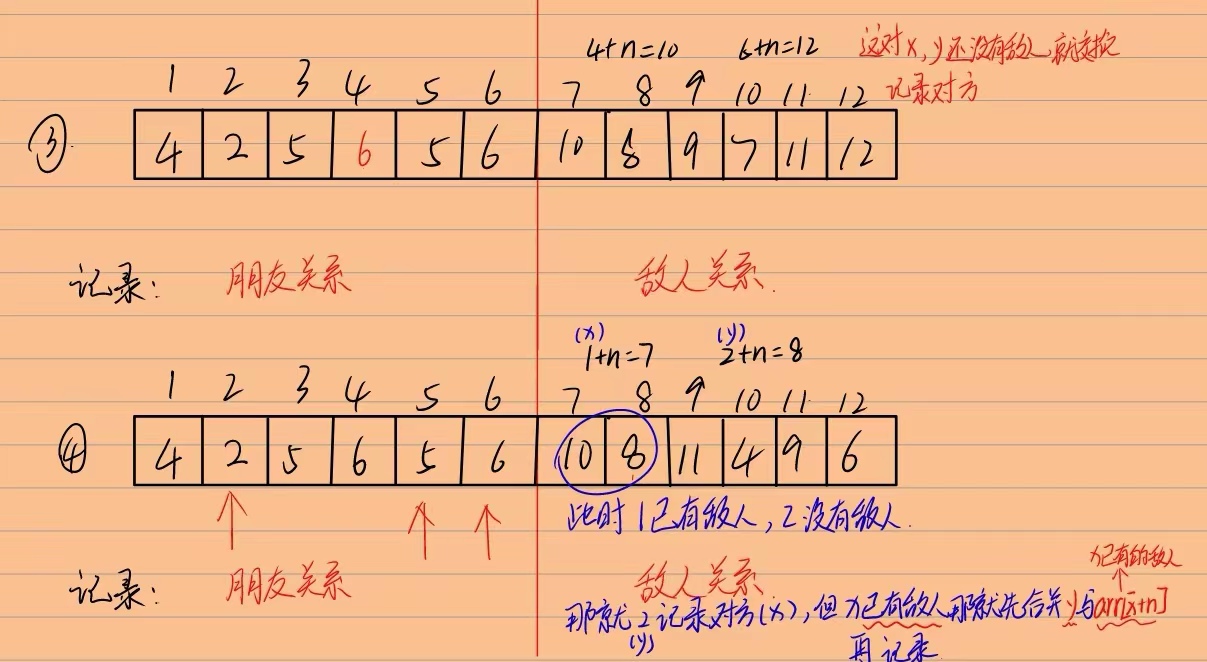 4+n=10 6+n=12 这对x,y还没有敌人 就直接
记录对方
1 2 3 4 5 6 7 8 9 10 11 12
③ 4 2 5 6 5 6 10 8 9 7 11 12
记录: 朋友关系 敌人关系.
(x) (y)
1+n=7 2+n=8
1 2 3 4 5 6 7 8 9 10 11 12
④ 4 2 5 6 5 6 10 8 11 4 9 6
此时1已有敌人,2没有敌人.
x已有的敌人
记录: 朋友关系 敌人关系.
那就2记录对方(x),但x已有敌人那就先合并y与arr[x+n]
(y) 再记录